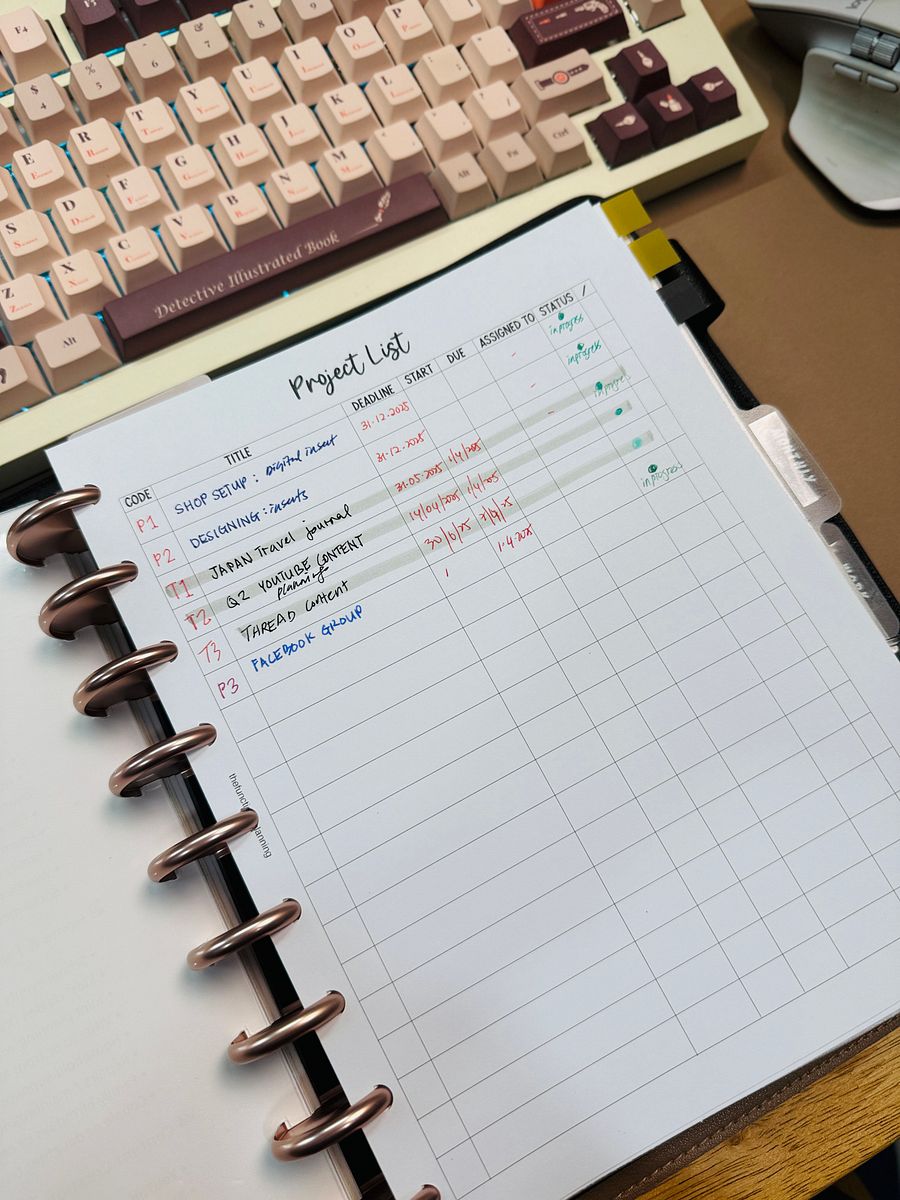 F4
$ 4
% 5
^ 6
& 7
* 8
( 9
E R T Y U I O P
S D F G H J K L
Z X C V B N M
Alt
Fn
Ctrl
Detective Illustrated Book
Alt
Project List
CODE TITLE DEADLINE START DUE ASSIGNED TO STATUS /
P1 SHOP SETUP : Digital insert 31-12-2025 - in progress
P2 DESIGNING : inserts 31-12-2025 - in progress
T1 JAPAN Travel journal 31-05-2025 1/4/2025 -
T2 Q2 YOUTUBE CONTENT 14/04/2025 1/4/2025
planning
T3 THREAD content 30/6/25
P3 FACEBOOK GROUP 1 1-4-2025 in progress
MONTHLY
WORK